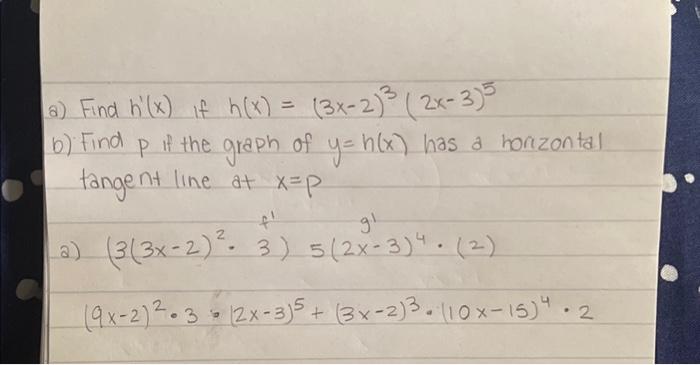 a) Find h'(x) if h(x) = (3x-2)³ (2x-3)⁵
b) Find p if the graph of y=h(x) has a horizontal
tangent line at x=p
f' g'
a) (3(3x-2)². 3) 5(2x-3)⁴ · (2)
(9x-2)² • 3 • (2x-3)⁵ + (3x-2)³ • (10x-15)⁴ • 2